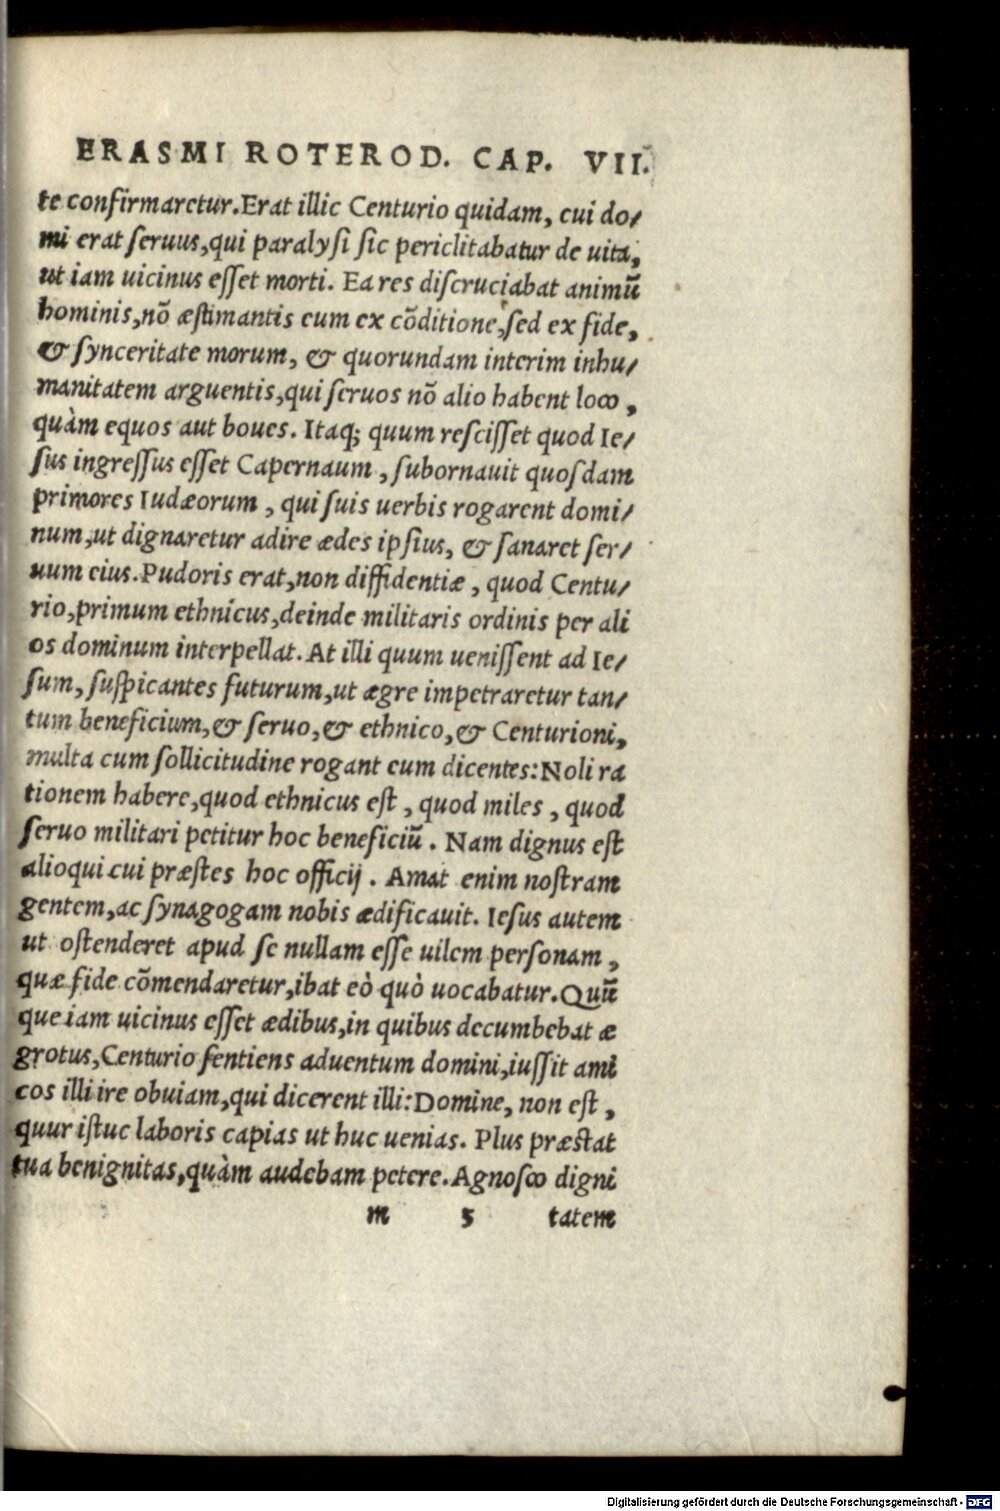 ERASMI ROTEROD. CAP. VII.
te confirmaretur.Erat illic Centurio quidam, cui do/
mi erat ſeruus,qui paralyſi ſic periclitabatur de uita,
ut iam uicinus eſſet morti. Ea res diſcruciabat animū
hominis,nō æſtimantis eum ex cōditione,ſed ex fide,
& ſynceritate morum, & quorundam interim inhu/
manitatem arguentis,qui ſeruos nō alio habent loco,
quàm equos aut boues. Itaq; quum reſciſſet quod Ie/
ſus ingreſſus eſſet Capernaum, ſubornauit quoſdam
primores Iudæorum, qui ſuis uerbis rogarent domi/
num,ut dignaretur adire ædes ipſius, & ſanaret ſer/
uum eius.Pudoris erat,non diffidentiæ, quod Centu/
rio,primum ethnicus,deinde militaris ordinis per ali
os dominum interpellat. At illi quum ueniſſent ad Ie/
ſum, ſuſpicantes futurum,ut ægre impetraretur tan/
tum beneficium,& ſeruo,& ethnico,& Centurioni,
multa cum ſollicitudine rogant eum dicentes:Noli ra
tionem habere,quod ethnicus eſt, quod miles, quod
ſeruo militari petitur hoc beneficiū. Nam dignus eſt
alioqui cui præſtes hoc officij. Amat enim noſtram
gentem,ac ſynagogam nobis ædificauit. Ieſus autem
ut oſtenderet apud ſe nullam eſſe uilem perſonam,
quæ fide cōmendaretur,ibat eò quò uocabatur.Quū
que iam uicinus eſſet ædibus,in quibus decumbebat æ
grotus,Centurio ſentiens aduentum domini,iuſſit ami
cos illi ire obuiam,qui dicerent illi:Domine, non eſt,
quur iſtuc laboris capias ut huc uenias. Plus præſtat
tua benignitas,quàm audebam petere.Agnoſco digni
m 5 tatem
Digitalisierung gefördert durch die Deutsche Forschungsgemeinschaft - DFG